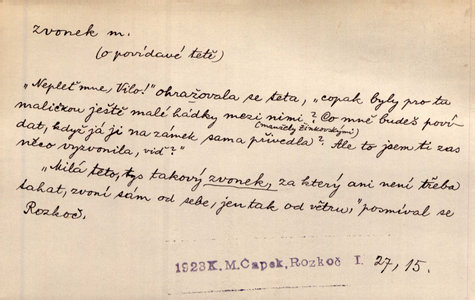 zvonek m.
(o povídavé tetě)
„Nepleť mne, Vilo!" ohražovala se teta, „copak byly pro ta
maličkou ještě malé hádky mezi nimi? Co mně budeš poví-
(manžely Činkovskými)
dat, když já ji na zámek sama přivedla? Ale to jsem ti zas
něco vyzvonila, viď?"
„Milá teto, tys takový zvonek, za který ani není třeba
tahat, zvoní sám od sebe, jen tak od větru," posmíval se
Rozkoč.
1923K.M.Čapek, Rozkoč I. 27, 15.